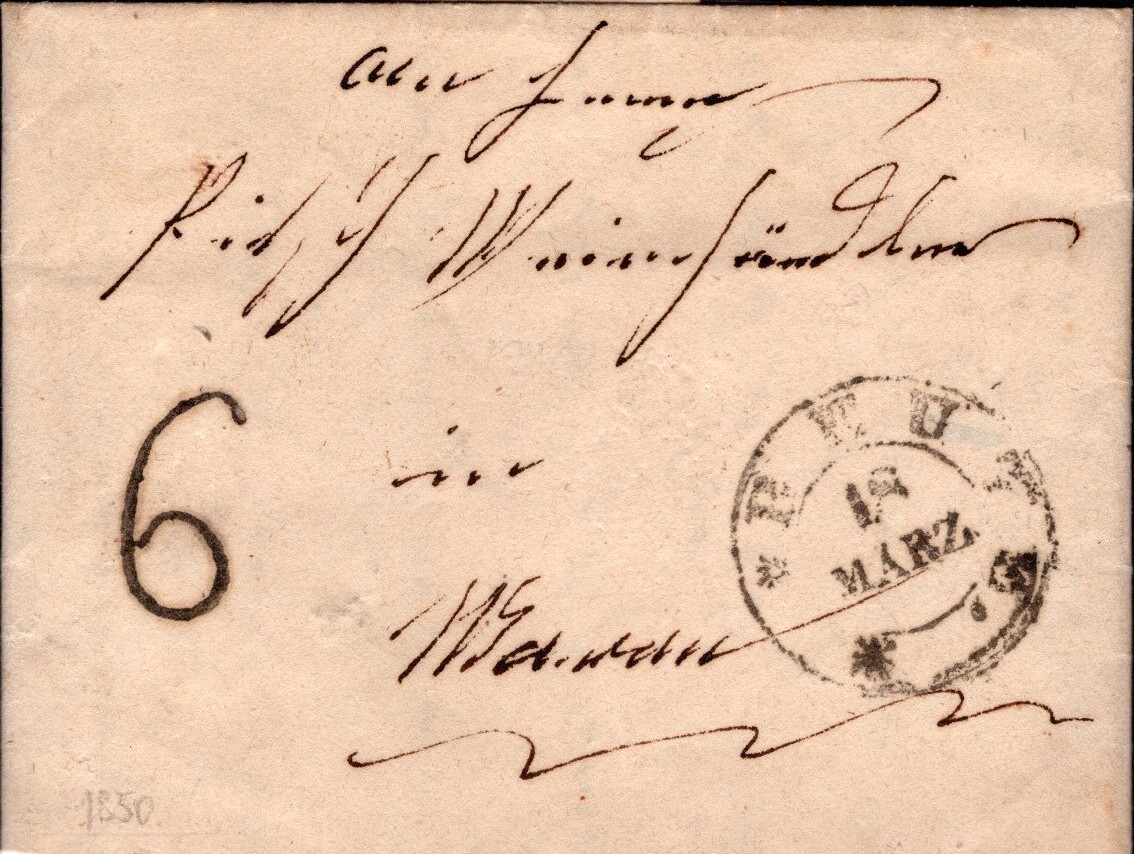 an Herrn
Pitsch Weinhändler
6
in
18
MÄRZ
Meran
1850